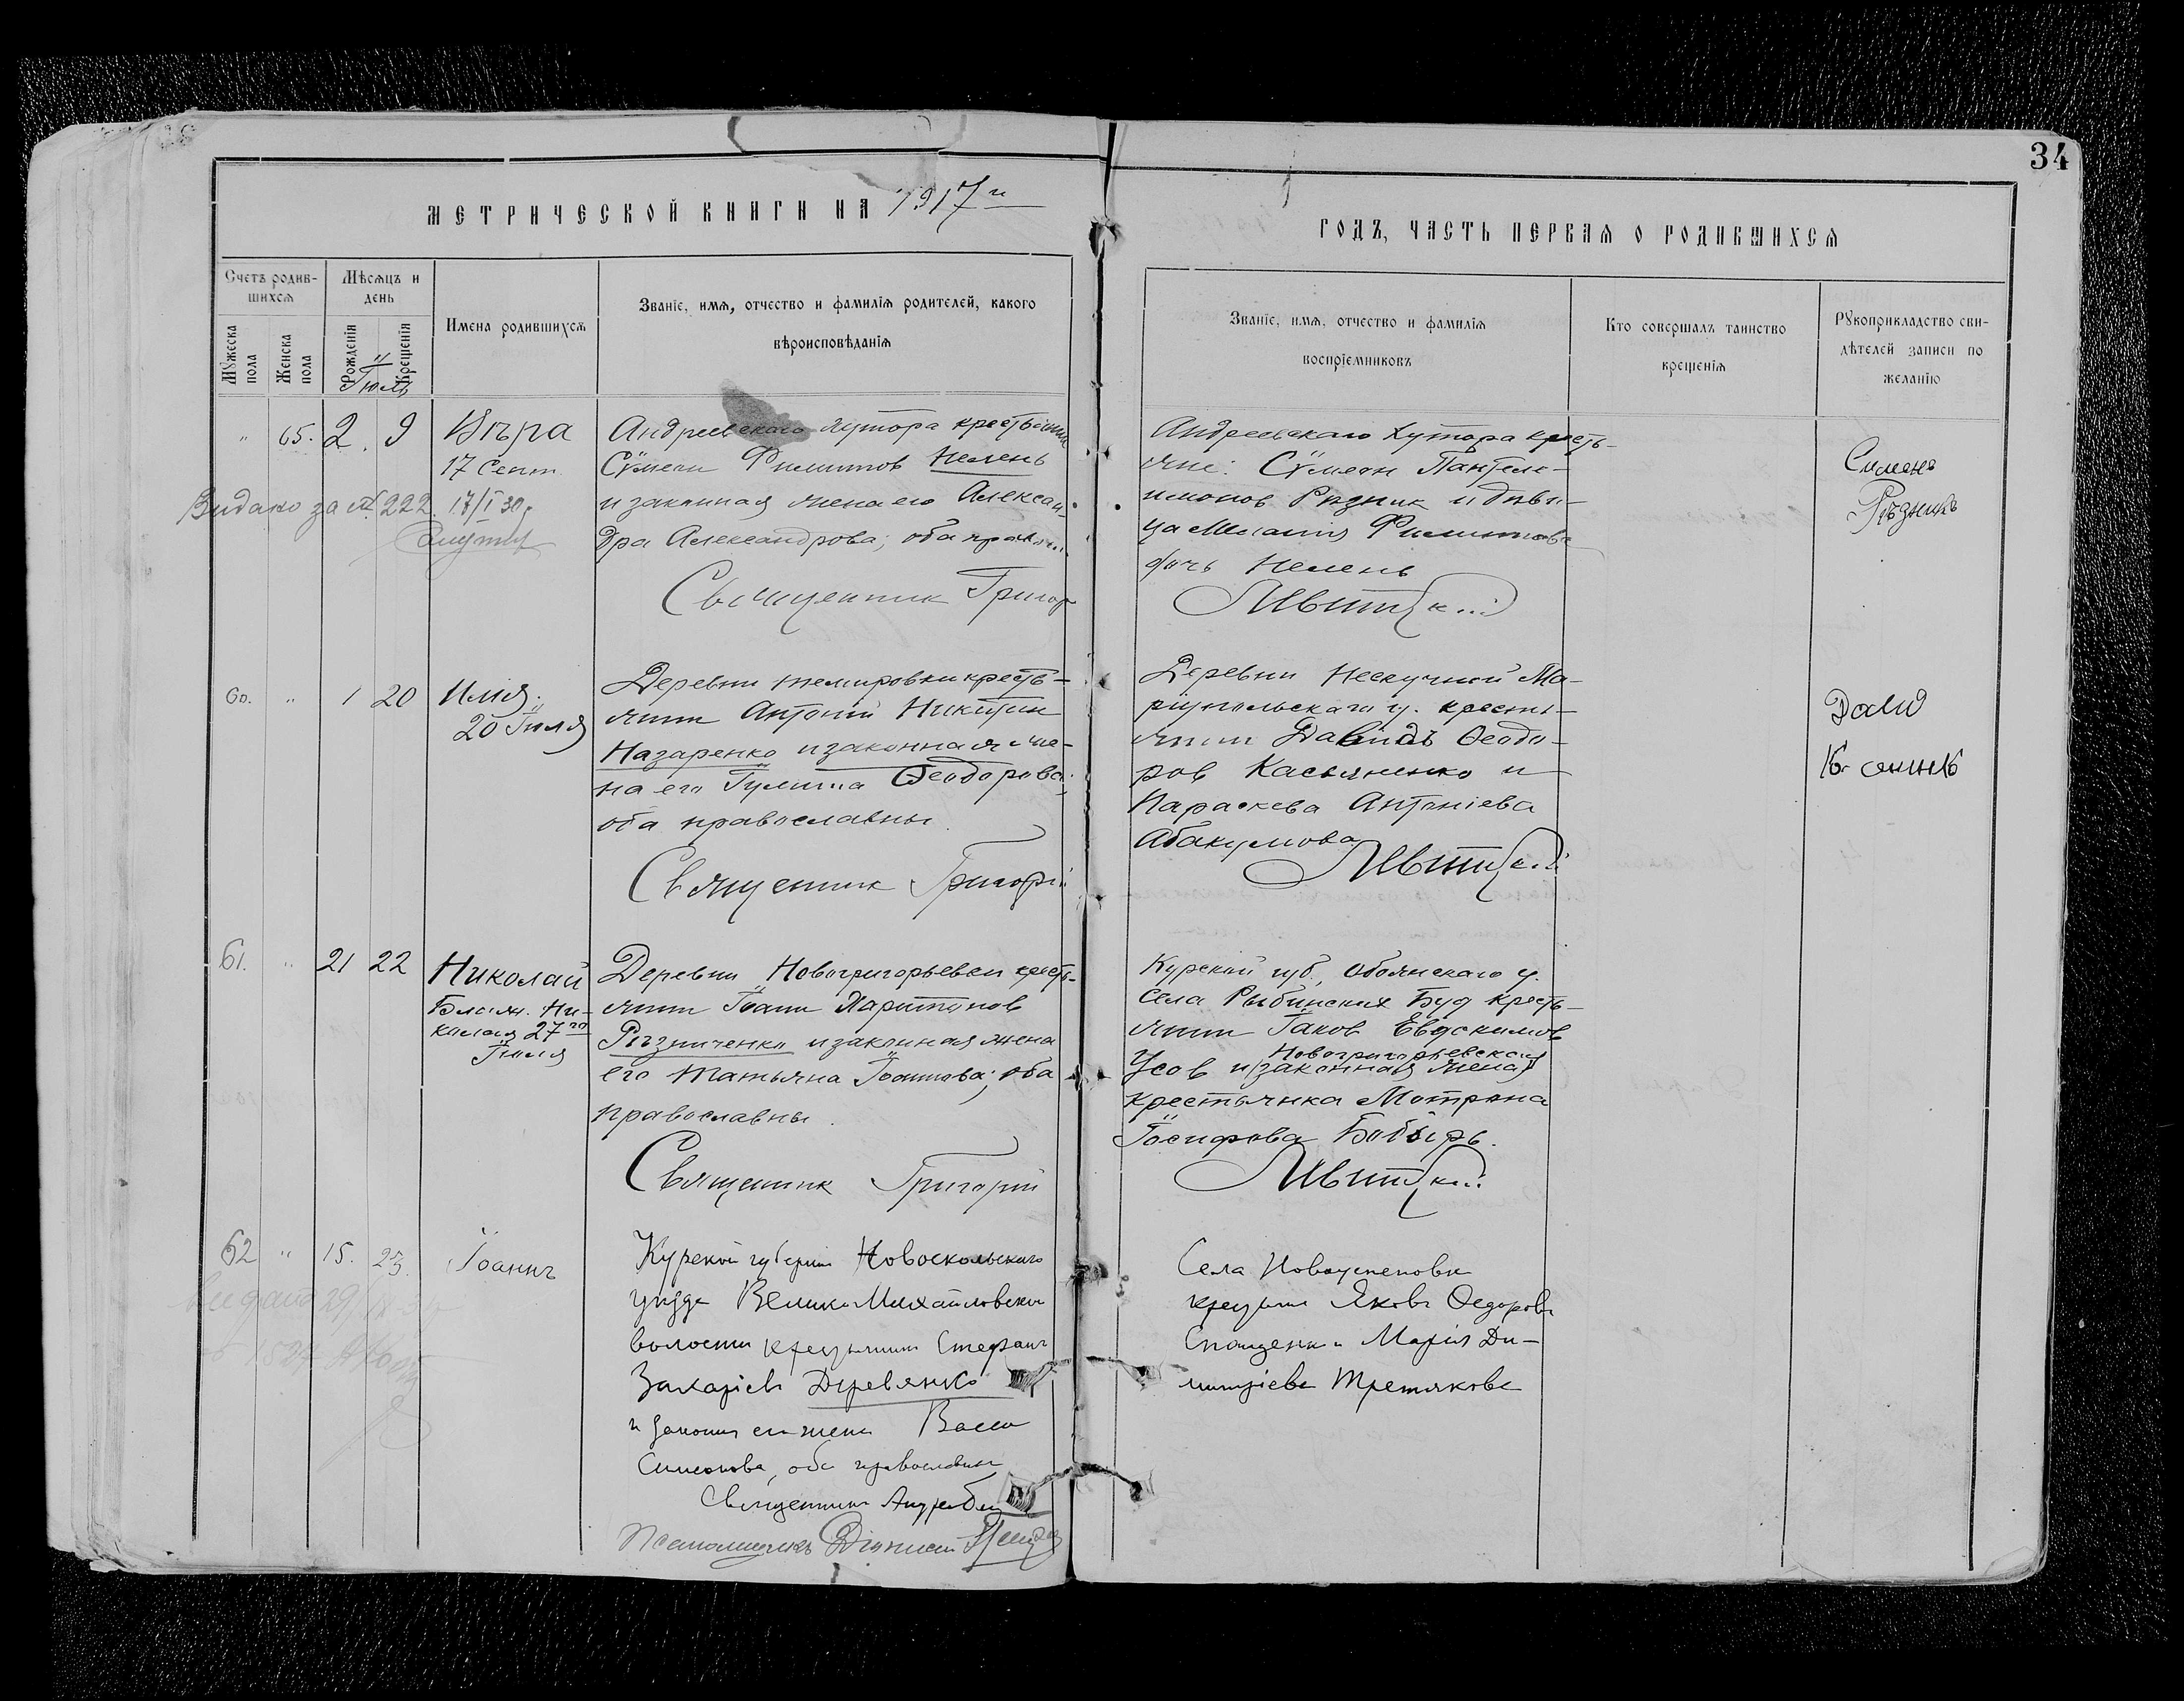 34
МЕТРИЧЕСКОЙ КНИГИ НА 1917 й
ГОДЪ, ЧАСТЬ ПЕРВАЯ О РОДИВШИХСЯ
Счетъ родив-
шихся
Мужеска пола
Женска пола
Мѣсяцъ и
день
Рожденія
Крещенія
Іюль
Имена родившихся
Званіе, имя, отчество и фамилія родителей, какого
вѣроисповѣданія
Званіе, имя, отчество и фамилія
воспріемниковъ
Кто совершалъ таинство
крещенія
Рукоприкладство сви-
дѣтелей записи по
желанію
" 65. 2. 9 Вѣра
17 Сент.
Видано за № 222. 17/I 30
Андреевскаго хутора крестьянин
Сѵмеон Филиппов Нелень
и законная жена его Алексан-
дра Александрова; оба правосл.
Священник Григор
Андреевскаго Хутора кресть-
яне: Сѵмеон Пантеле-
имонов Рѣзник и дѣви-
ца Мелания Филиппова
дочь Нелень
Ливитский
Сименъ
Рѣзникъ
60. " 1 20 Илия.
20 Іюля
Деревни Темировки кресть-
янин Антоній Никитин
Назаренко и законная же-
на его Гулита Ѳеодорова;
оба православны.
Священник Григорій
Деревни Нескучной Ма-
ріупольскаго у. кресть-
янин Давидъ Ѳеодо-
ров Касьяненко и
Параскева Антоніева
Абакумова
Ливитский
Давид
61. " 21 22 Николай
Блажн. Ни-
колая 27 го
Іюля
Деревни Новогригорьевки кресть-
янин Іоанн Харитонов
Рѣзниченко и законная жена
его Татьяна Іоаннова; оба
православны.
Священник Григорій
Курской губ., Обоянскаго у.
села Рыбинских Буд кресть-
янин Іаков Евдокимов
Новогригорьевская
Усов и (законная жена)
крестьянка Мотрона
Іосифова Бобырь.
Ливитский
62 " 15. 23. Іоаннъ
Курской губерніи Новоскольскаго
уѣзда Велико Михайловской
волости крестьянинъ Стефанъ
Захаріевъ Деревянко
и законн его жена Васса
Симеонова, оба православны
Священникъ Андрей
Псаломщикъ Діонисий
Села Новоуспеновки
крестьян Яковъ Ѳедоровъ
Спащенк и Марія Ди-
митріева Третьякова